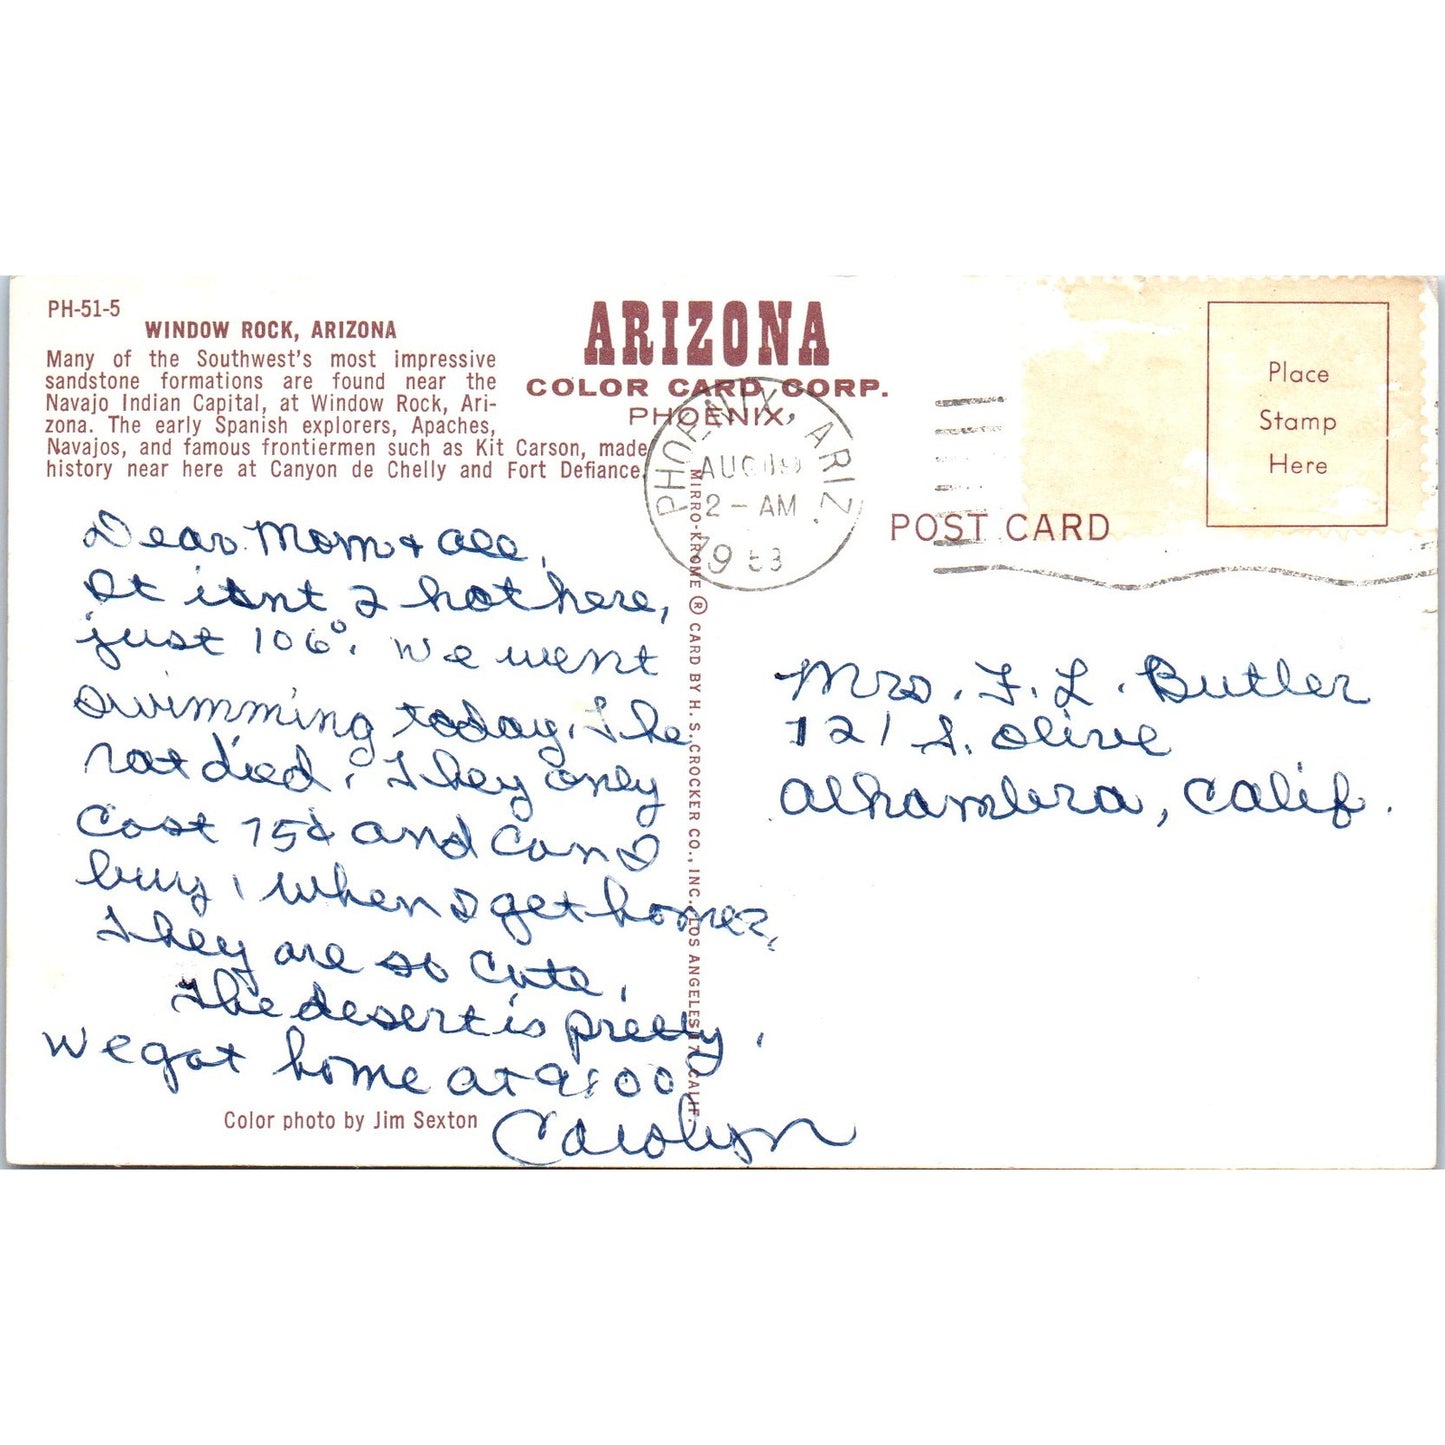 PH-51-5
WINDOW ROCK, ARIZONA
Many of the Southwest's most impressive
sandstone formations are found near the
Navajo Indian Capital, at Window Rock, Ari-
zona. The early Spanish explorers, Apaches,
Navajos, and famous frontiermen such as Kit Carson, made
history near here at Canyon de Chelly and Fort Defiance.
ARIZONA
COLOR CARD CORP.
PHOENIX
PHOENIX, ARIZ.
AUG 19
2-AM
19
POST CARD
Place
Stamp
Here
Dear Mom & all,
It isnt 2 hot here,
just 106°. We went
swimming today. The
rat died. They only
cost 75¢ and can I
buy 1 when I get home?
They are so cute.
The desert is pretty.
We got home at 9:00
Carolyn
Color photo by Jim Sexton
MIRRO-KROME ® CARD BY H. S. CROCKER CO., INC. LOS ANGELES 17, CALIF.
Mrs. F. L. Butler
721 S. Olive
Alhambra, Calif.